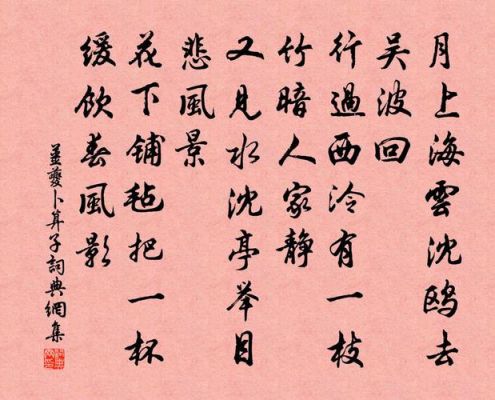 月上海雲沈鸥去
吴波回
行過西泠有一枝
竹暗人家静
又見水沈亭举目
悲風景
花下铺毡把一杯
缓饮春風影
姜夔卜算子詞典網集